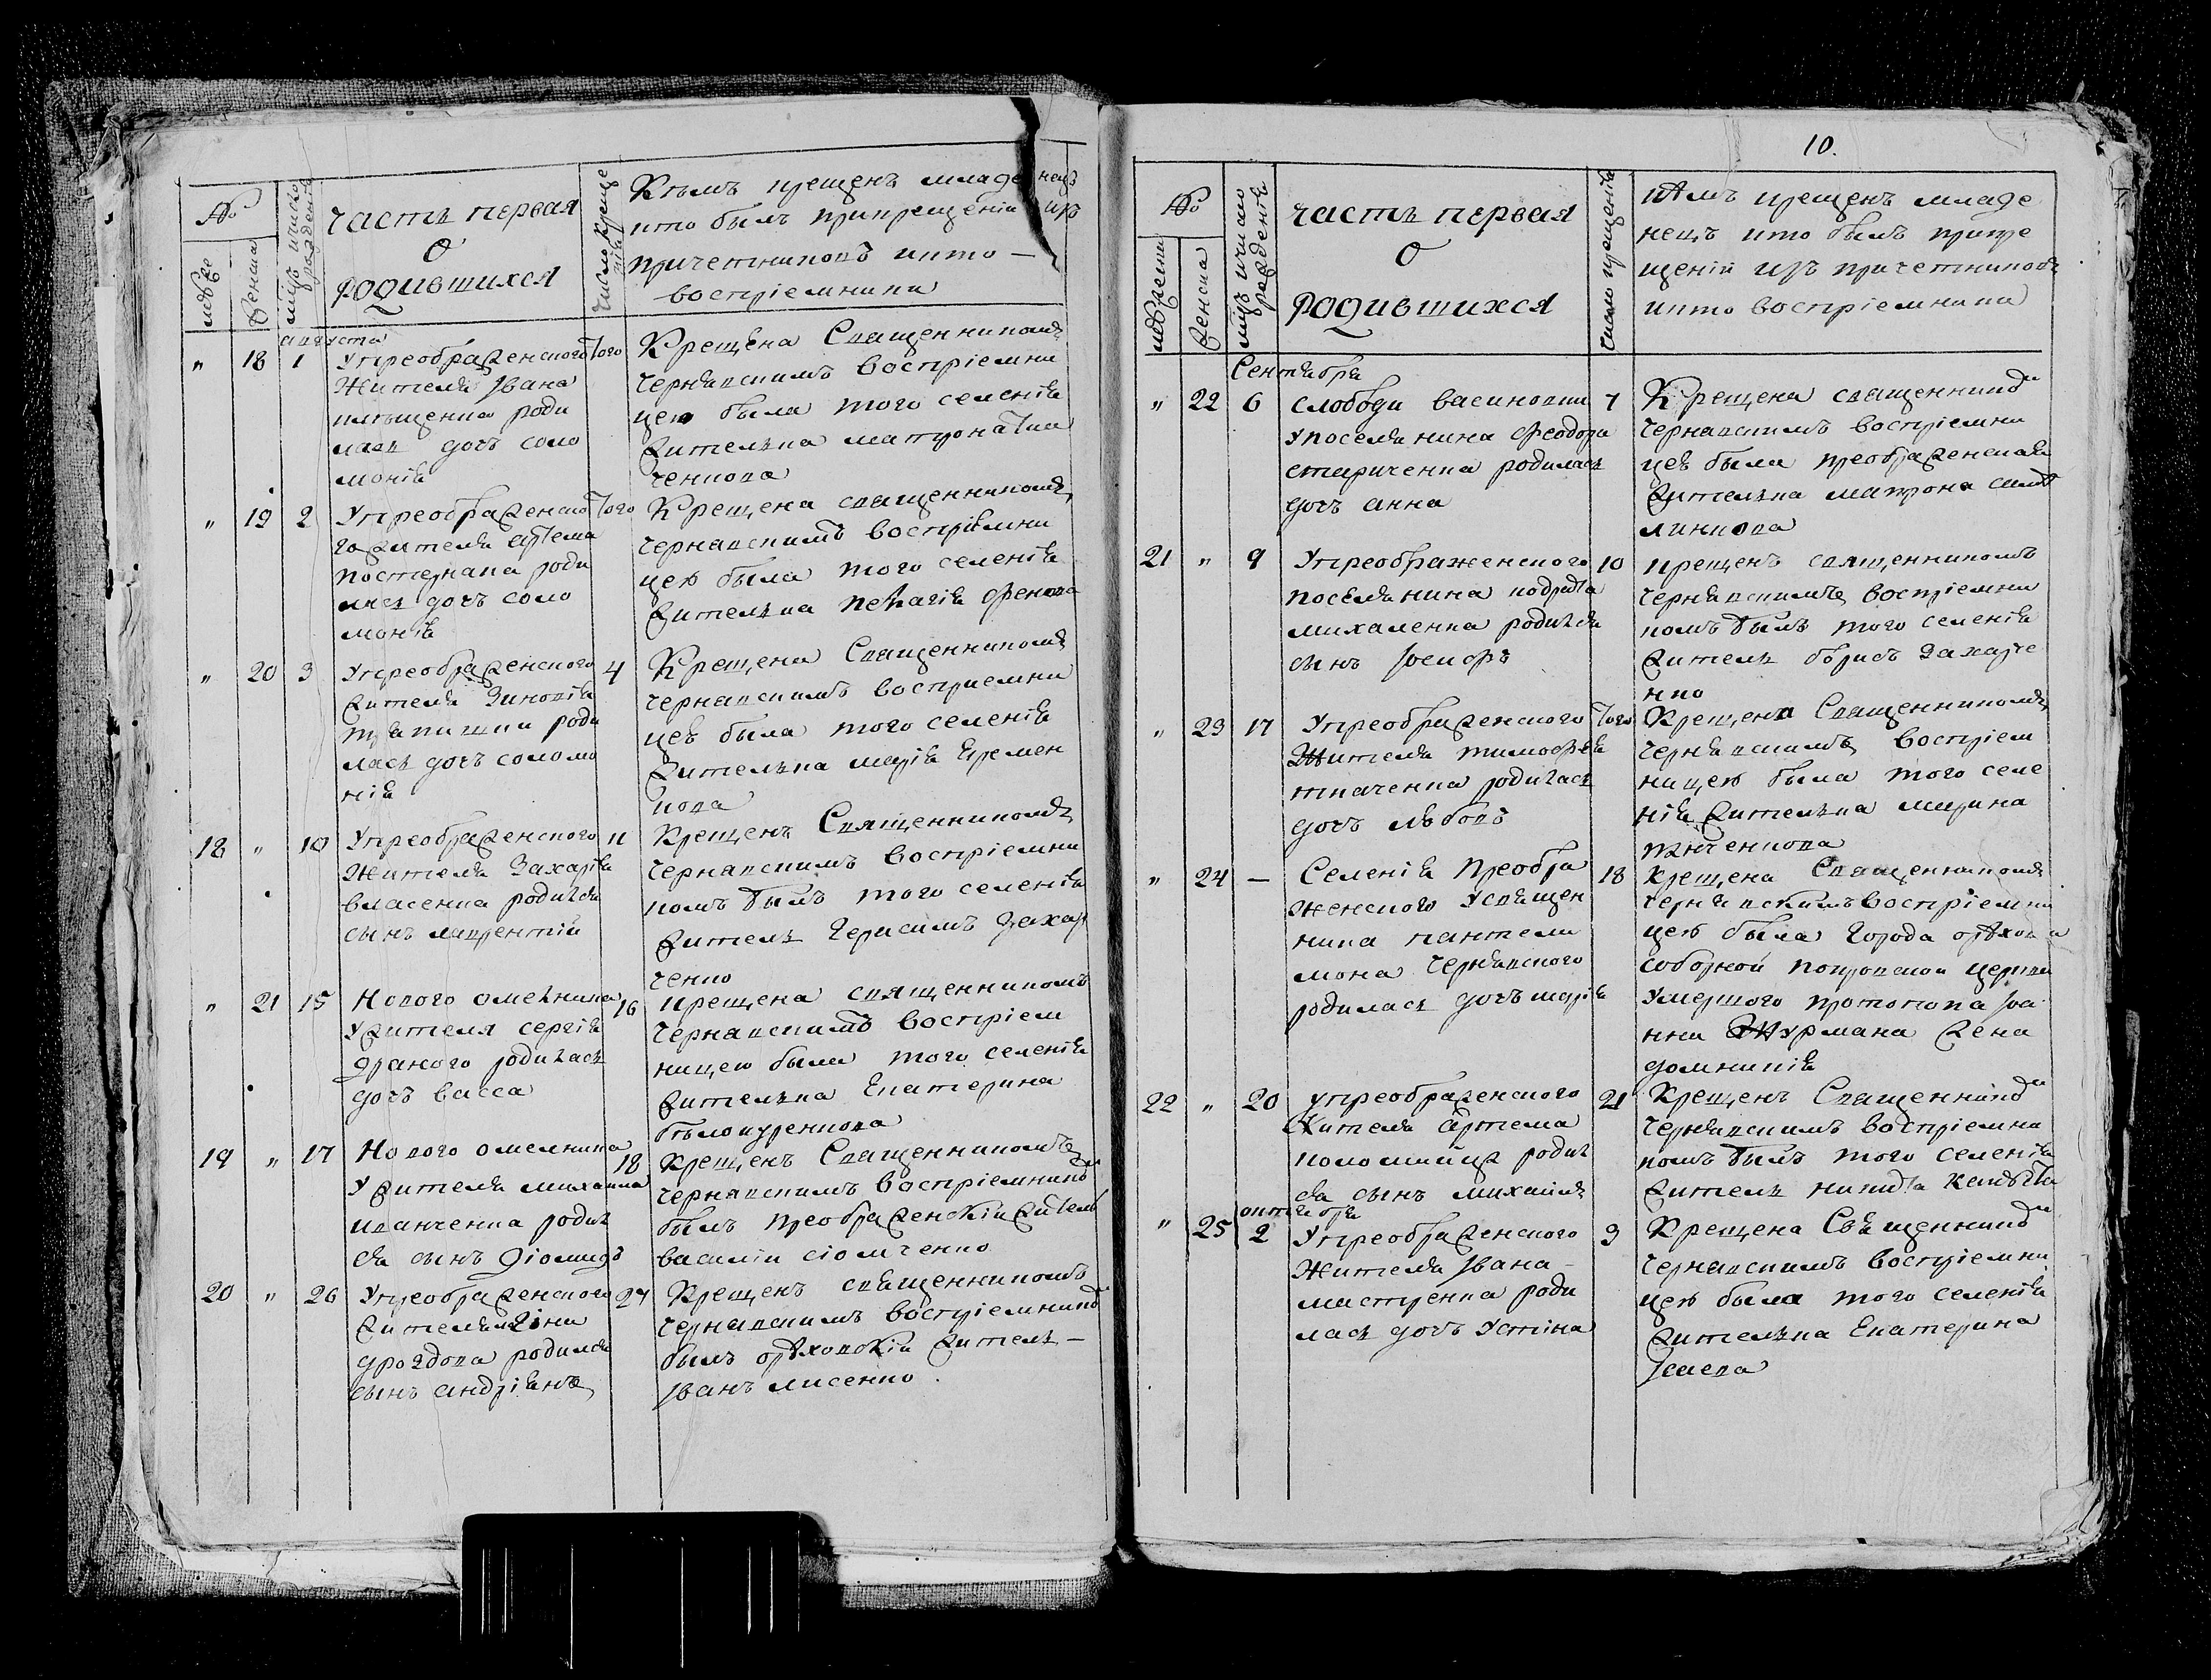 №
мужеска
женска
мцъ и число рожденія
часть первая
о
родившихся
число креще
нія
Кѣмъ крещенъ младенецъ
кто былъ прикрещеніи изъ
причетниковъ икто —
воспріемники
августа
„ 18 1
Упреображенского
Жителя Івана
клѣщенка роди
лась дочь соло
монія
Того
Крещена Священникомъ
Чернявскимъ воспріемни
цею была того селенія
жителька матрона Тка
ченкова
„ 19 2
Упреображенско
го жителя артема
постернака роди
лась дочь соло
монія
Того
Крещена священникомъ
Чернявскимъ воспріемни
цею была того селенія
жителька пелагія
„ 20 3
Упреображенского
жителя Зиновія
роди
лась дочь соломо
нія
4
Крещена Священникомъ
Чернявскимъ восприемни
цею была того селенія
жителька марія Ефремен
кова
18 „ 10
Упреображенского
Жителя Захарія
власенка родился
сынъ лаврентій
11
Крещенъ Священникомъ
Чернявскимъ воспріемни
комъ былъ того селенія
житель Герасимъ Захар
ченко
„ 21 15
Нового омелника
Ужителя сергія
драного родилась
дочь васса
16
крещена священникомъ
Чернявскимъ воспріем
ницею была того селенія
жителька Екатерина
бѣлокуренкова
19 „ 17
Нового омелника
Ужителя михаила
иванченка родил
ся сынъ Діомидъ
18
крещенъ Священникомъ
Чернявскимъ воспріемникомъ
былъ преображенскій житель
василій сіомченко
20 „ 26
Упреображенского
жителя
дроздова родился
сынъ андріянъ
27
Крещенъ священникомъ
Чернявскимъ воспріемникомъ
былъ орѣховскій житель —
Іванъ лисенко.
10.
№
мужеска
женска
мцъ ичисло
рожденія
часть первая
о
родившихся
число крещенія
кѣмъ крещенъ младе
нецъ кто былъ прикре
щеній изъ причетниковъ
икто воспріемники
Сентября
„ 22 6
слободи васиновки
упоселянина феодора
стариченка родилась
дочь анна
7
Крещена священникомъ
Чернявскимъ воспріемни
цею была преображенская
жителька матрона
21 „ 9
Упреображенского
поселянина кодрата
михаленка родился
синъ Іосифъ
10
крещенъ священникомъ
Чернявскимъ воспріемни
комъ былъ того селенія
житель борисъ Захарче
нко
„ 23 17
Упреображенского
Жителя тимофея
ткаченка родилась
дочь любовь
Того
Крещена Священникомъ
Чернявскимъ воспріем
ницею была того селе
нія жителька марина
„ 24 —
Селенія Преобра
женского усвящен
ника пантели
мона Чернявского
родилась дочь марія
18
крещена Священникомъ
Чернявскимъ воспріемни
цею была города орѣхова
соборной покровской церкви
умершого протопопа Іоа
нна Журмана жена
домникія
22 „ 20
упреображенского
Жителя артема
коломийця родил
ся сынъ михаилъ
21
Крещенъ Священникомъ
Чернявскимъ воспріемни
комъ былъ того селенія
житель никита
октября
„ 25 2
Упреображенского
Жителя Івана
мастренка роди
лась дочь Устіна
3
Крещена Священникомъ
Чернявскимъ воспріемни
цею была того селенія
жителька Екатерина
Ісаева